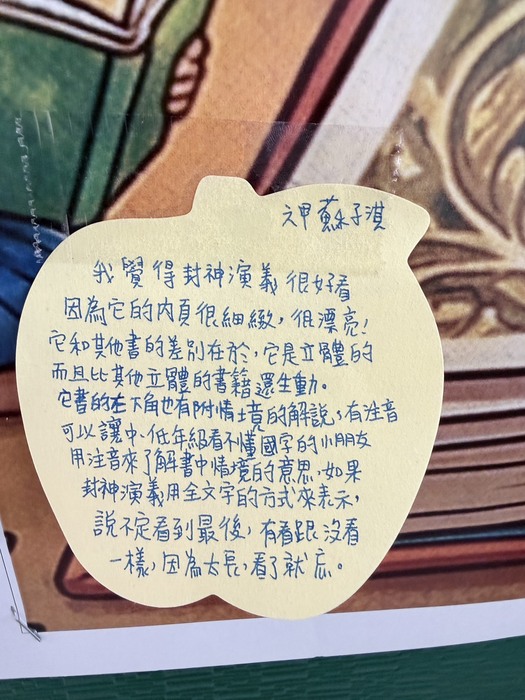 六甲 蘇子淇
我覺得封神演義很好看
因為它的內頁很細緻，很漂亮！
它和其他書的差別在於，它是立體的
而且比其他立體的書籍還生動。
它書的左下角也有附情境的解說，有注音
可以讓中、低年級看不懂國字的小朋友
用注音來了解書中情境的意思，如果
封神演義用全文字的方式來表示，
說不定看到最後，有看跟沒看
一樣，因為太長，看了就忘。